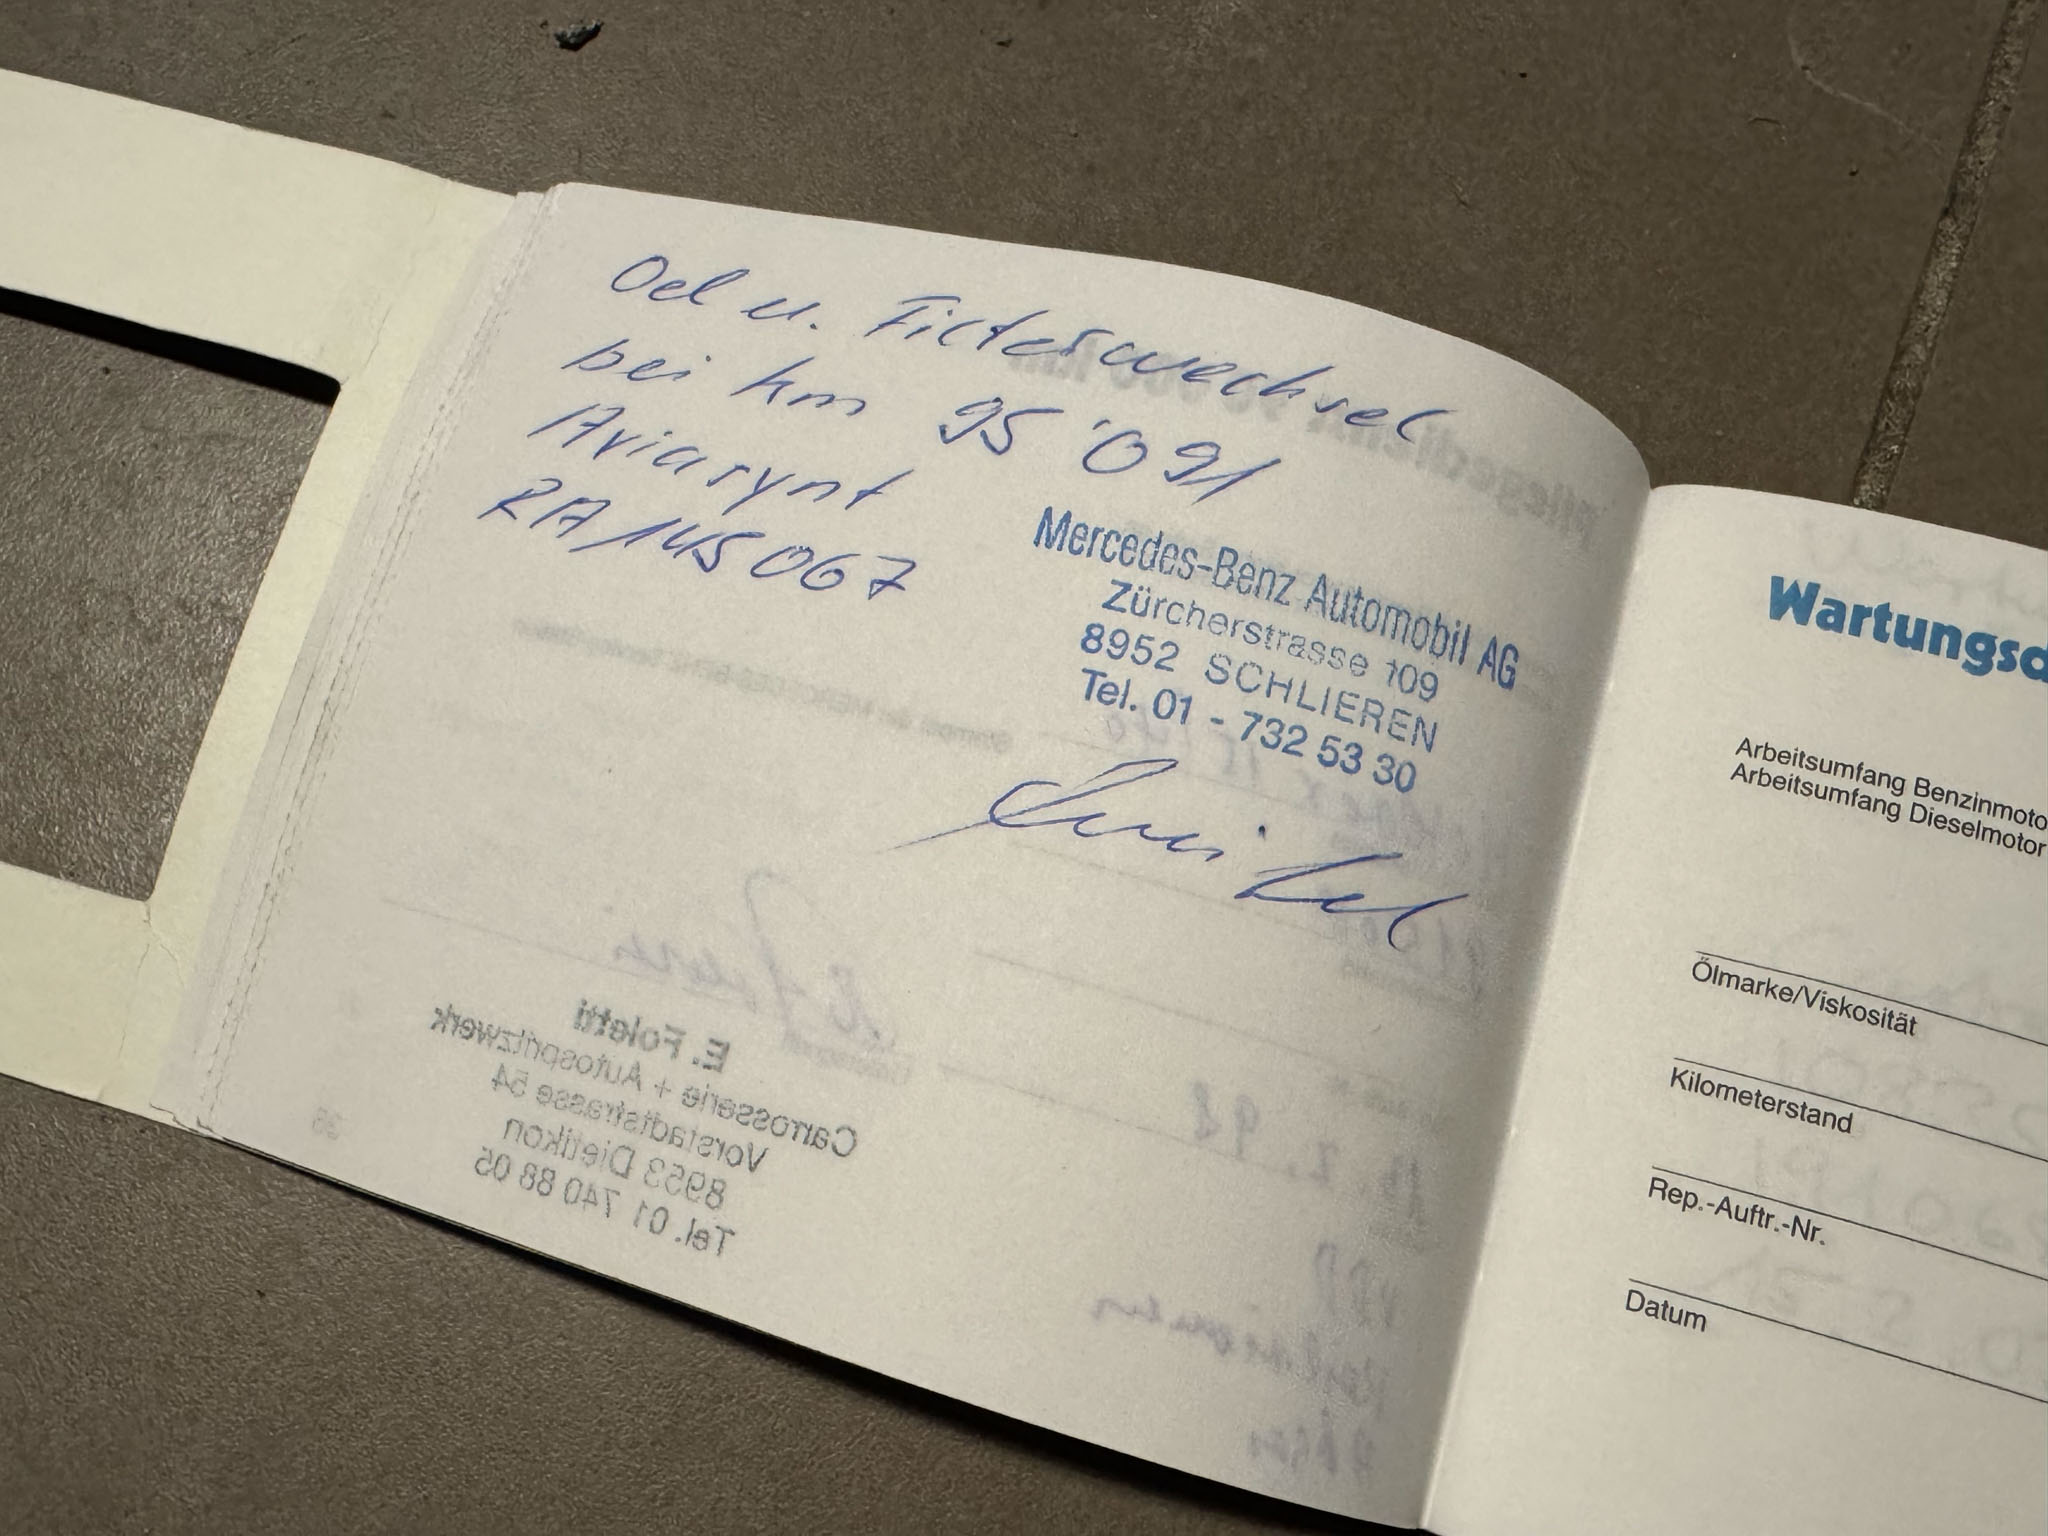 Oel u. Filterwechsel
bei km 95'091
Aviasynt
RA/145067
Mercedes-Benz Automobil AG
Zürcherstrasse 109
8952 SCHLIEREN
Tel. 01 - 732 53 30
E. Foletti
Carrosserie + Autospritzwerk
Vorstadtstrasse 54
8953 Dietikon
Tel. 01 740 88 05
Wartungsd
Arbeitsumfang Benzinmoto
Arbeitsumfang Dieselmotor
Ölmarke/Viskosität
Kilometerstand
Rep.-Auftr.-Nr.
Datum